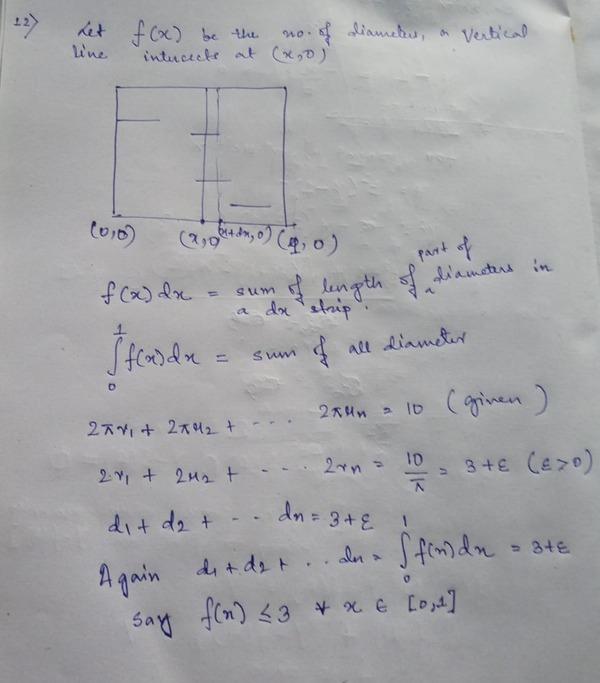 12) Let f(x) be the no. of diameters, a vertical
line intersects at (x,0)
(0,0) (x,0) (x+dx,0) (1,0)
f(x)dx = sum of length of part of diameters in
a dx strip.
∫₀¹ f(x)dx = sum of all diameter
2πr₁ + 2πr₂ + ... 2πrₙ = 10 (given)
2r₁ + 2r₂ + - - . 2rₙ = 10/π = 3+ε (ε>0)
d₁ + d₂ + - - dₙ = 3+ε
Again d₁+d₂+ .. dₙ = ∫₀¹ f(x)dx = 3+ε
say f(x) ≤ 3 ∀ x ∈ [0,1]